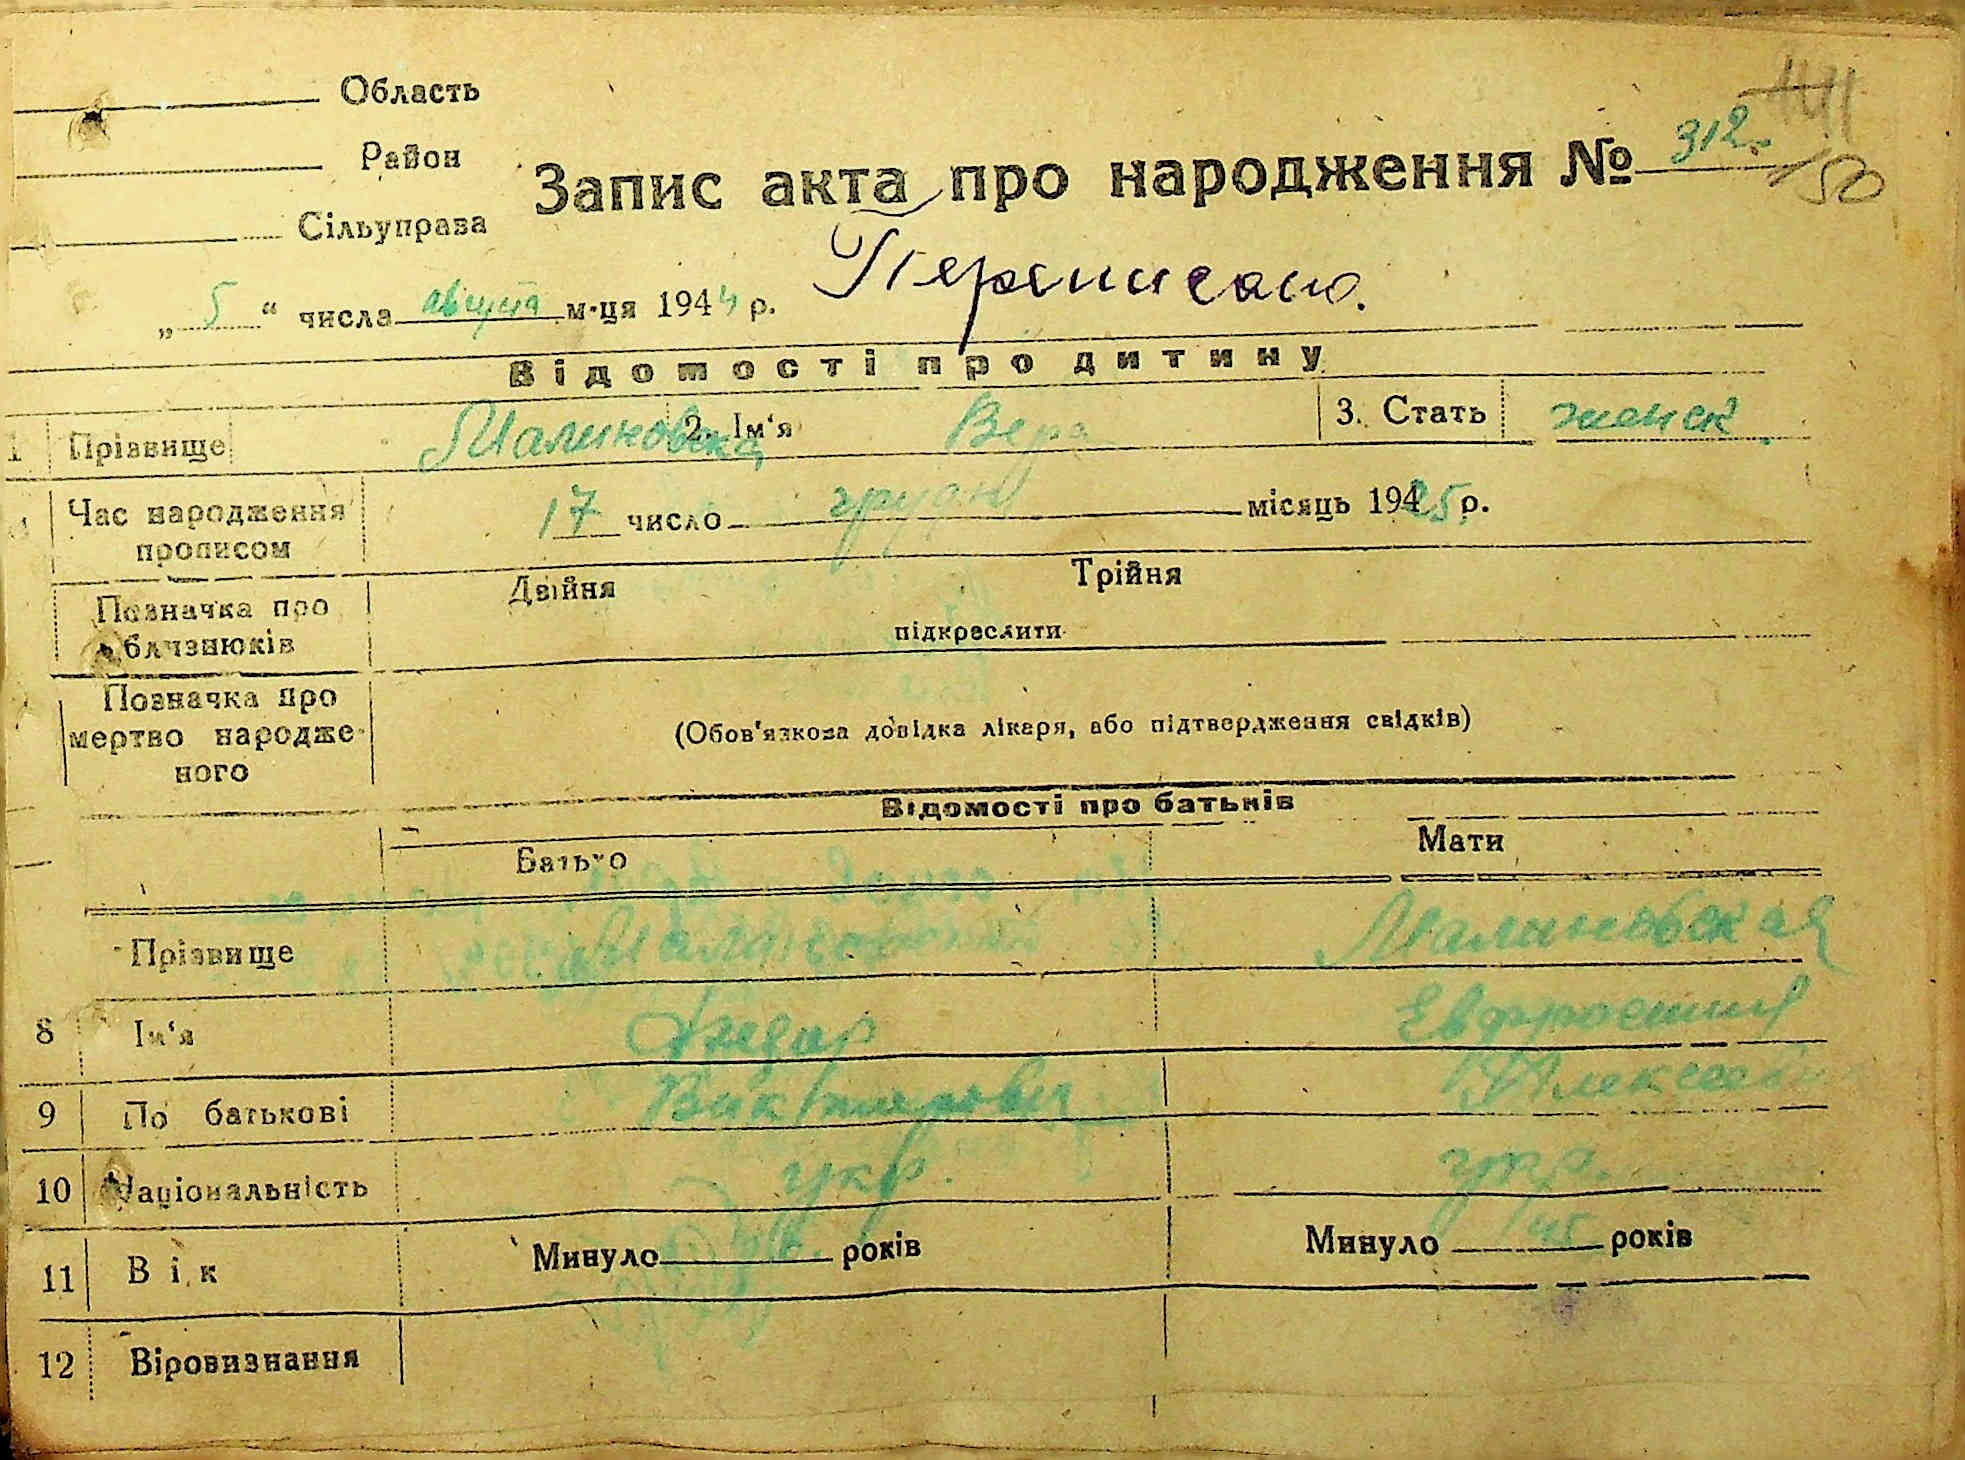 Область
Район
Сільуправа
Запис акта про народження № 312.
141
150
„ 5 “ числа августа м-ця 1944 р. Переписано.
Відомості про дитину
1 Прізвище Малиновска 2. Ім‘я Вера 3. Стать женск.
Час народження прописом 17 число грудня місяць 1925 р.
Позначка про близнюків Двійня Трійня
підкреслити
Позначка про мертво народженого (Обов'язкова довідка лікаря, або підтвердження свідків)
Відомості про батьків
Батько Мати
Прізвище Малиновский Малиновская
8 Ім‘я Федор Евфросиния
9 По батькові Викт Алексеев
10 Національність укр. укр.
11 Вік Минуло років Минуло 45 років
12 Віровизнання